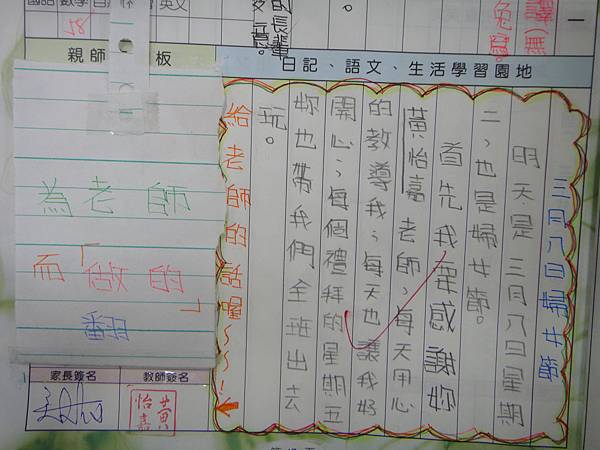 一
譯(無
兔窟。
的長輩
國語
數學
自
英文
58
親師
板
日記、語文、生活學習園地
三月八日婦女節
明天是三月八日星期
二，也是婦女節。
首先我要感謝妳
黃怡嘉老師，每天用心
的教導我，每天也讓我好
開心，每個禮拜的星期五
妳也帶我們全班出去
玩。
給老師的話喔~~！
為老師
而「做的」
翻
家長簽名
教師簽名
黃怡嘉